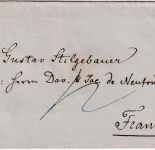 Gustav Stilgebauer
: Herrn Dav. & Jac. de Neufvi
Fran